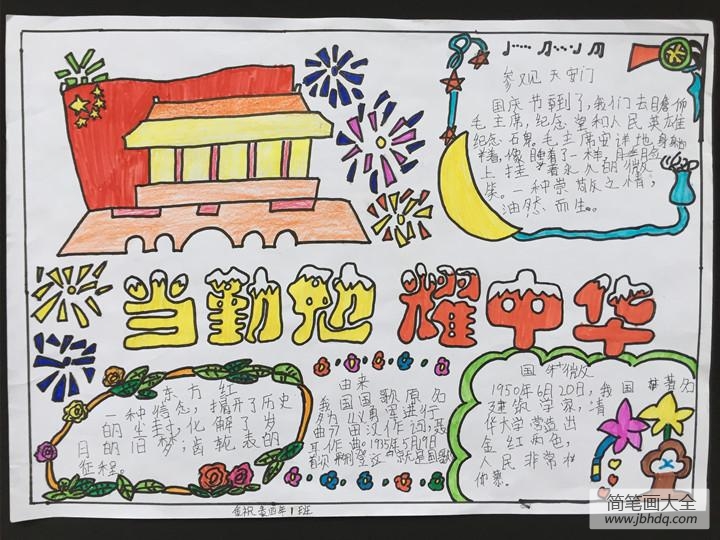 参观天安门
国庆节到了,我们去瞻仰
毛主席,纪念堂和人民英雄
纪念石碑。毛主席安详地身躺
着,像睡着了一样,
上挂着永久的微
笑。一种崇敬之情,
油然而生。
当勤勉 耀中华
东方红
一种信念,揭开了历史
的尘封,化解了岁
月的旧梦;齿轮表的
征程。
由来
我国国歌原名
为义勇军进行
曲,田汉作词,聂
耳作曲。1935年5月9日
国徽
1950年6月20日,我国著名
建筑学家,清
华大学营造出
金红两色,
人民非常
仰慕。
简笔画大全
www.jbhdq.com